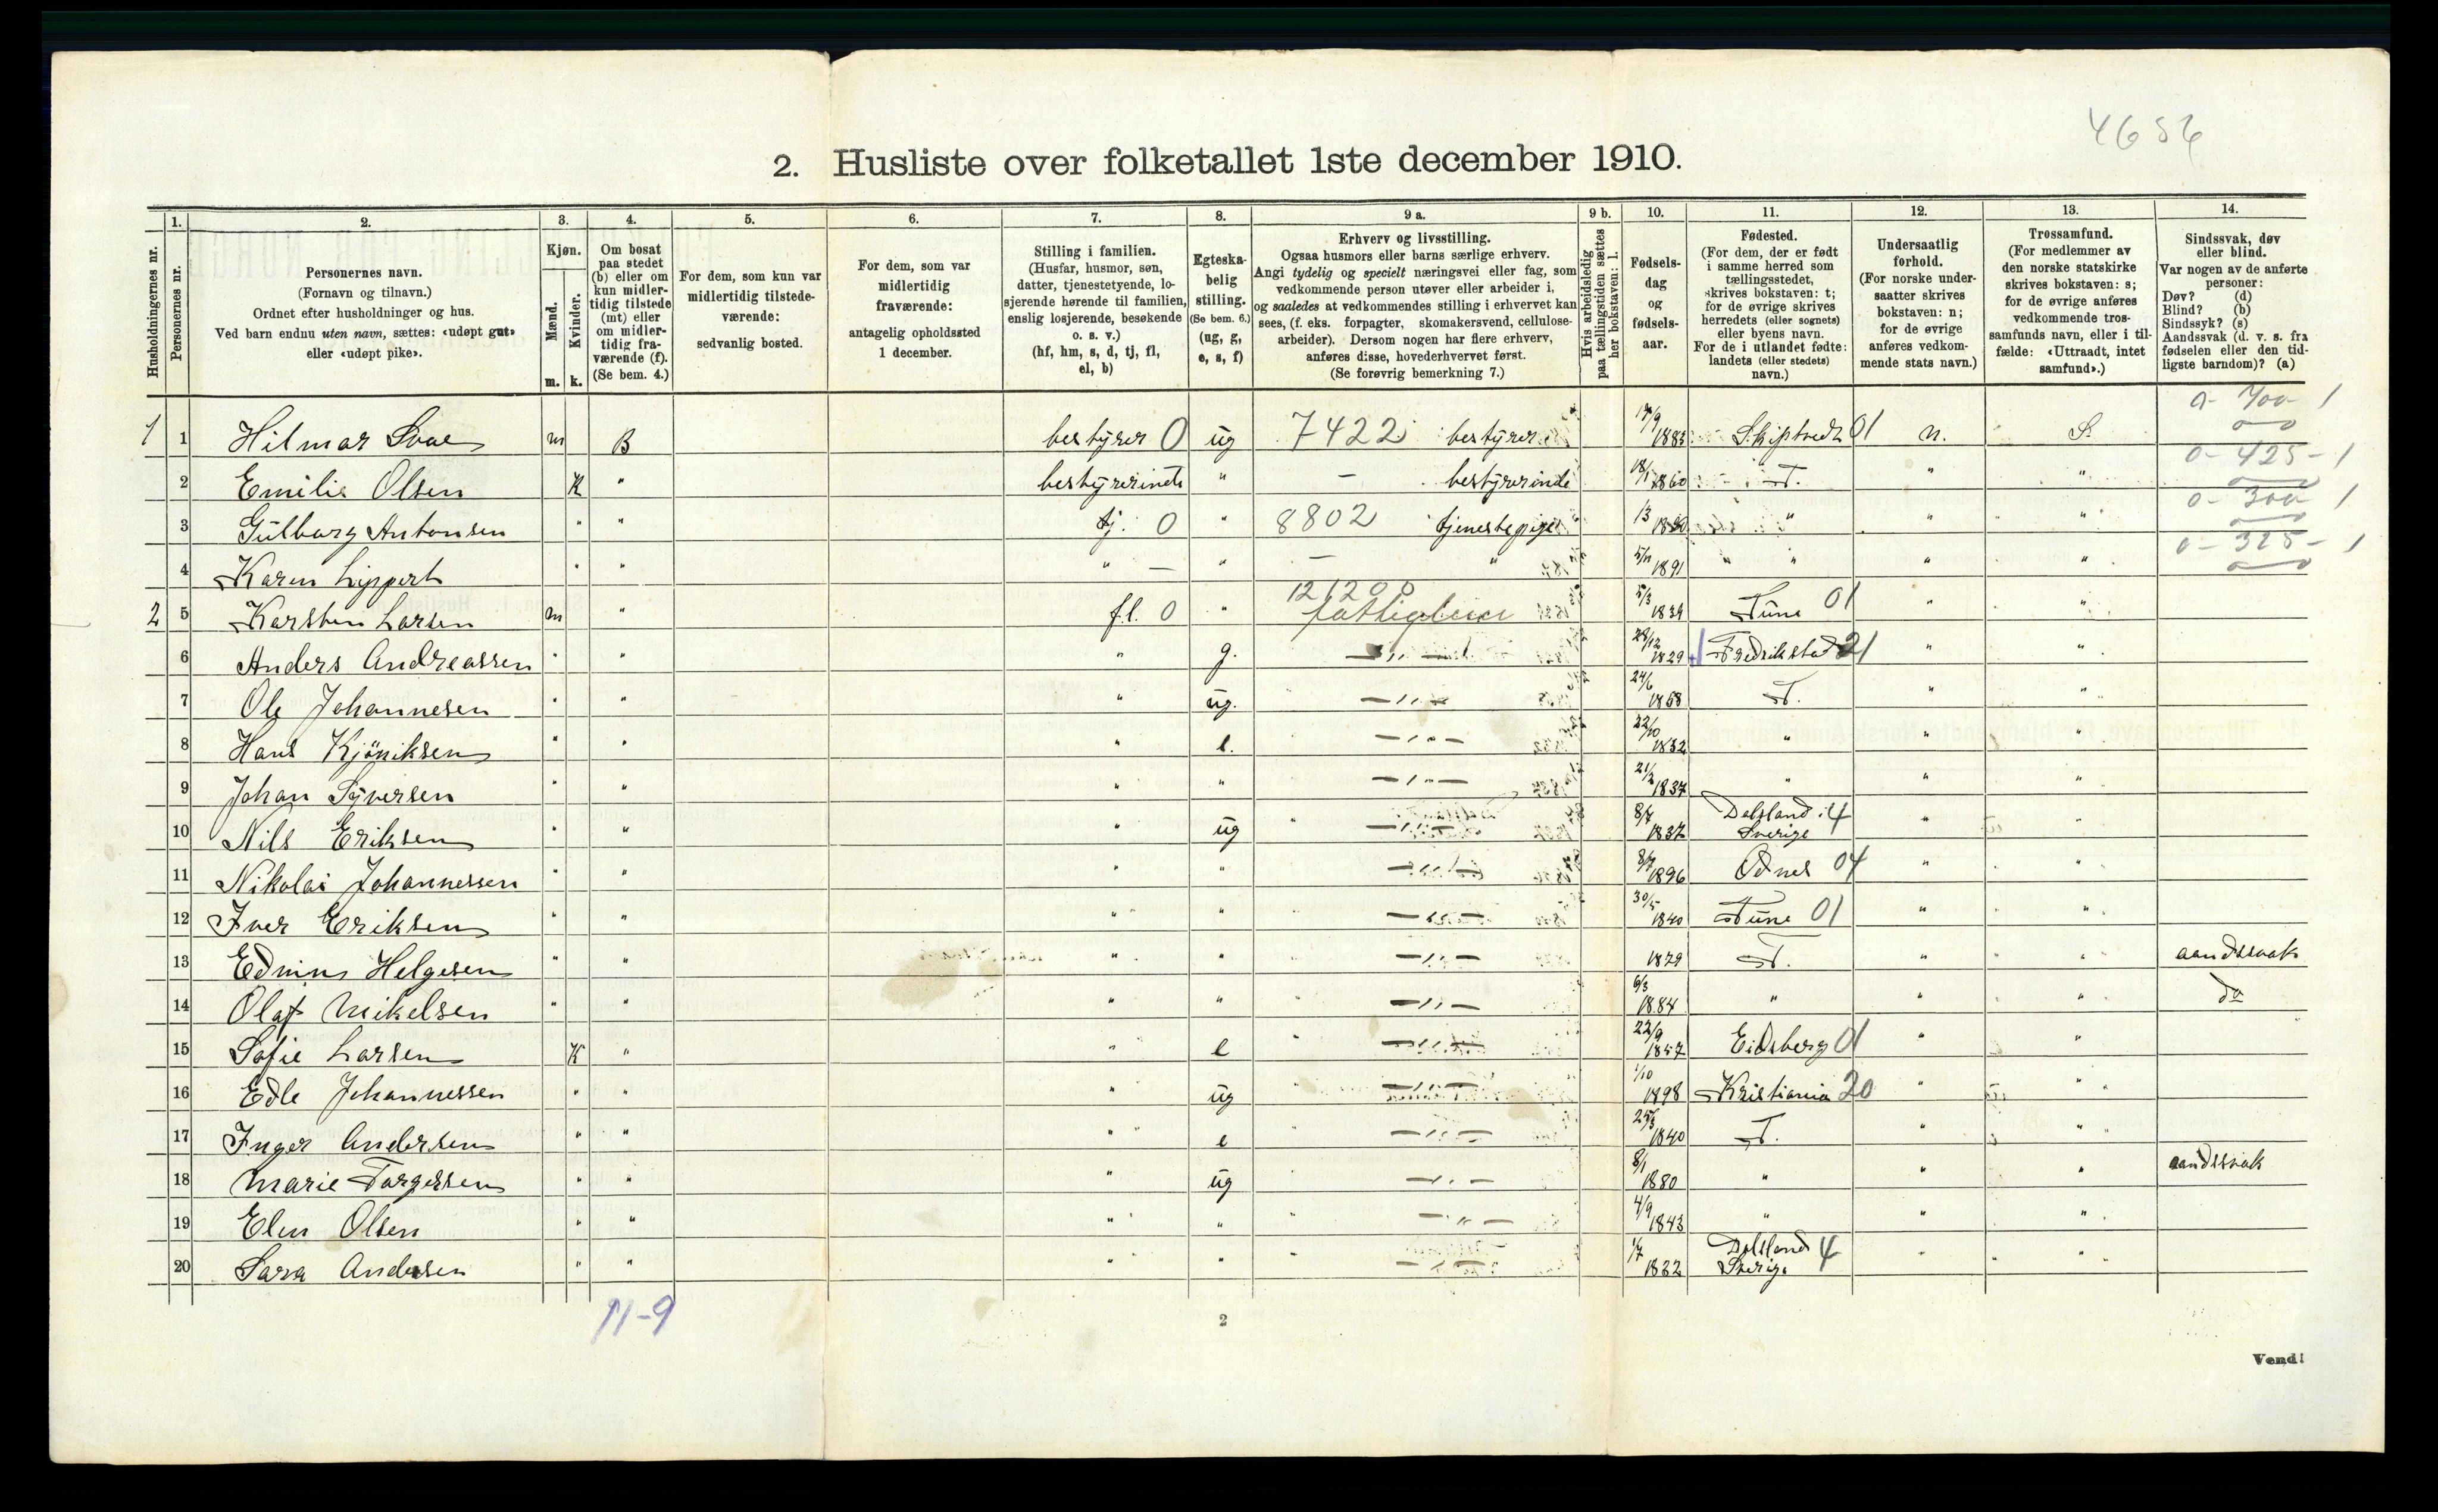 4656
2. Husliste over folketallet 1ste december 1910.
1. 2. 3. 4. 5. 6. 7. 8. 9 a. 9 b. 10. 11. 12. 13. 14.
Husholdningernes nr.
Personernes nr.
Personernes navn.
(Fornavn og tilnavn.)
Ordnet efter husholdninger og hus.
Ved barn endnu uten navn, sættes: «udøpt gut»
eller «udøpt pike».
Kjøn.
Mænd.
Kvinder.
m. k.
Om bosat
paa stedet
(b) eller om
kun midler-
tidig tilstede
(mt) eller
om midler-
tidig fra-
værende (f).
(Se bem. 4.)
For dem, som kun var
midlertidig tilstede-
værende:
sedvanlig bosted.
For dem, som var
midlertidig
fraværende:
antagelig opholdssted
1 december.
Stilling i familien.
(Husfar, husmor, søn,
datter, tjenestetyende, lo-
sjerende hørende til familien,
enslig losjerende, besøkende
o. s. v.)
(hf, hm, s, d, tj, fl,
el, b)
Egteska-
belig
stilling.
(Se bem. 6.)
(ug, g,
e, s, f)
Erhverv og livsstilling.
Ogsaa husmors eller barns særlige erhverv.
Angi tydelig og specielt næringsvei eller fag, som
vedkommende person utøver eller arbeider i,
og saaledes at vedkommendes stilling i erhvervet kan
sees, (f. eks. forpagter, skomakersvend, cellulose-
arbeider). Dersom nogen har flere erhverv,
anføres disse, hovederhvervet først.
(Se forøvrig bemerkning 7.)
Hvis arbeidsledig
paa tællingstiden sættes
her bokstaven: l.
Fødsels-
dag
og
fødsels-
aar.
Fødested.
(For dem, der er født
i samme herred som
tællingsstedet,
skrives bokstaven: t;
for de øvrige skrives
herredets (eller sognets)
eller byens navn.
For de i utlandet fødte:
landets (eller stedets)
navn.)
Undersaatlig
forhold.
(For norske under-
saatter skrives
bokstaven: n;
for de øvrige
anføres vedkom-
mende stats navn.)
Trossamfund.
(For medlemmer av
den norske statskirke
skrives bokstaven: s;
for de øvrige anføres
vedkommende tros-
samfunds navn, eller i til-
fælde: «Uttraadt, intet
samfund».)
Sindssvak, døv
eller blind.
Var nogen av de anførte
personer:
Døv? (d)
Blind? (b)
Sindssyk? (s)
Aandssvak (d. v. s. fra
fødselen eller den tid-
ligste barndom)? (a)
1 1 Hilmar m B bestyrer 0 ug 7422 bestyrer 1883 Skiptvedt 01 n. S. 0- 700- 1
2 Emilie Olsen K " bestyrerinde " - bestyrerinde 18/1 1860 T. " " 0- 425- 1
3 Gulborg Antonsen " " tj. 0 " 8802 tjenestepige 13 " " " 0- 300- 1
4 Karen Lippert " " " - " - " 5/11 1891 " " " " 0- 325- 1
2 5 Karsten Larsen m " fl. 0 " 121200 fattiglem 5/3 1839 Tune 01 " "
6 Anders Andreassen " " " g. -"- 28/12 1829 Fredrikstad 21 " "
7 Ole Johannesen " " " ug. -"- 24/6 1858 T. " "
8 Hans Kjöniksen " " " e. -"- 22/10 1832 " " "
9 Johan Syversen " " " " -"- 21/2 1837 " " "
10 Nils Eriksen " " " ug -"- 8/7 1837 Dalsland i 4 Sverige " "
11 Nikolai Johannessen " " " " -"- 8/7 1896 Odnes 04 " "
12 Iver Eriksen " " " " -"- 30/5 1840 Tune 01 " "
13 Helgesen " " " " -"- 1879 T. " " aandssvak
14 Olaf Mikelsen " " " " -"- 6/3 1884 " " " do
15 Sofie Larsen K " " e -"- 22/9 1857 Eidsberg 01 " "
16 Edle Johannessen " " " ug -"- 1/10 1898 Kristiania 20 " "
17 Inger Andersen " " " e -"- 1840 T. " "
18 Marie Torgersen " " " ug -"- 8/1 1880 " " " aandssvak
19 Elen Olsen " " " " -"- 4/9 1843 " " "
20 Sara Andersen " " " " -"- 1/7 1832 Dalsland 4 Sverige " "
11-9
2
Vend!